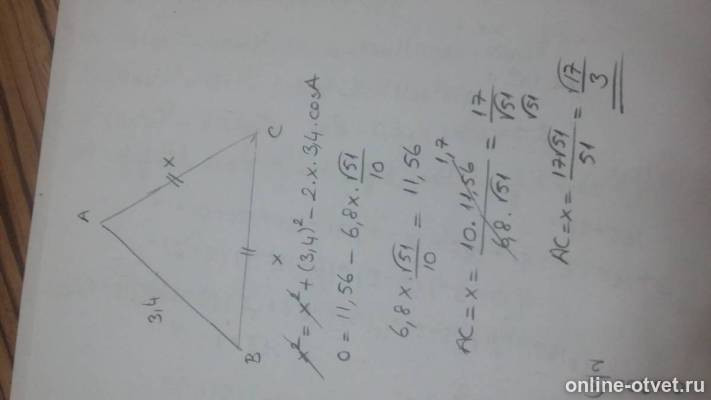 A
3,4
x
B
C
x
x² = x² + (3,4)² - 2·x·3,4·cosA
0 = 11,56 - 6,8x·√51/10
6,8x·√51/10 = 11,56
AC = x = 10·11,56/6,8·√51 = 17/√51
1,7
√51
AC = x = 17√51/51 = √17/3
online-otvet.ru